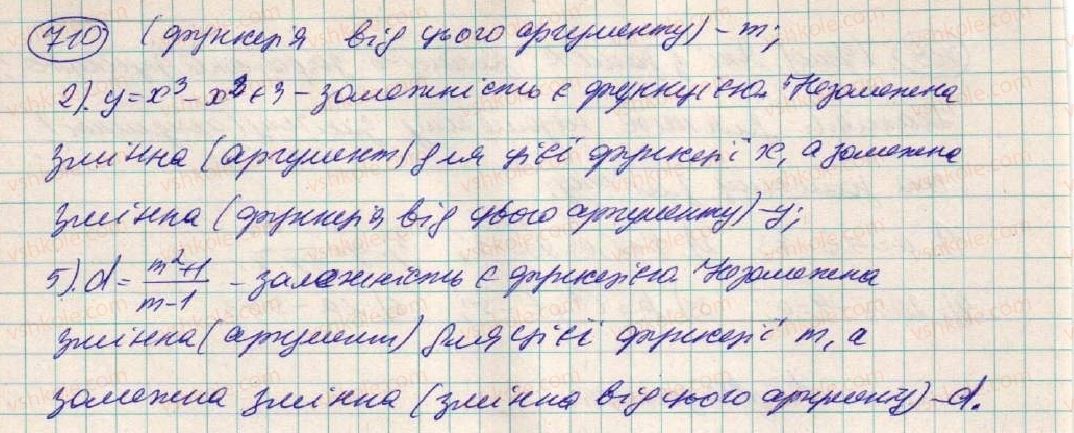 710 (функція від цього аргументу) – m;
2). y = x³ – x² + 3 – залежність є функцією. Незалежна
змінна (аргумент) для цієї функції x, а залежна
змінна (функція від цього аргументу) – y;
5). d = (m²+1)/(m–1) – залежність є функцією. Незалежна
змінна (аргумент) для цієї функції m, а
залежна змінна (змінна від цього аргументу) – d.